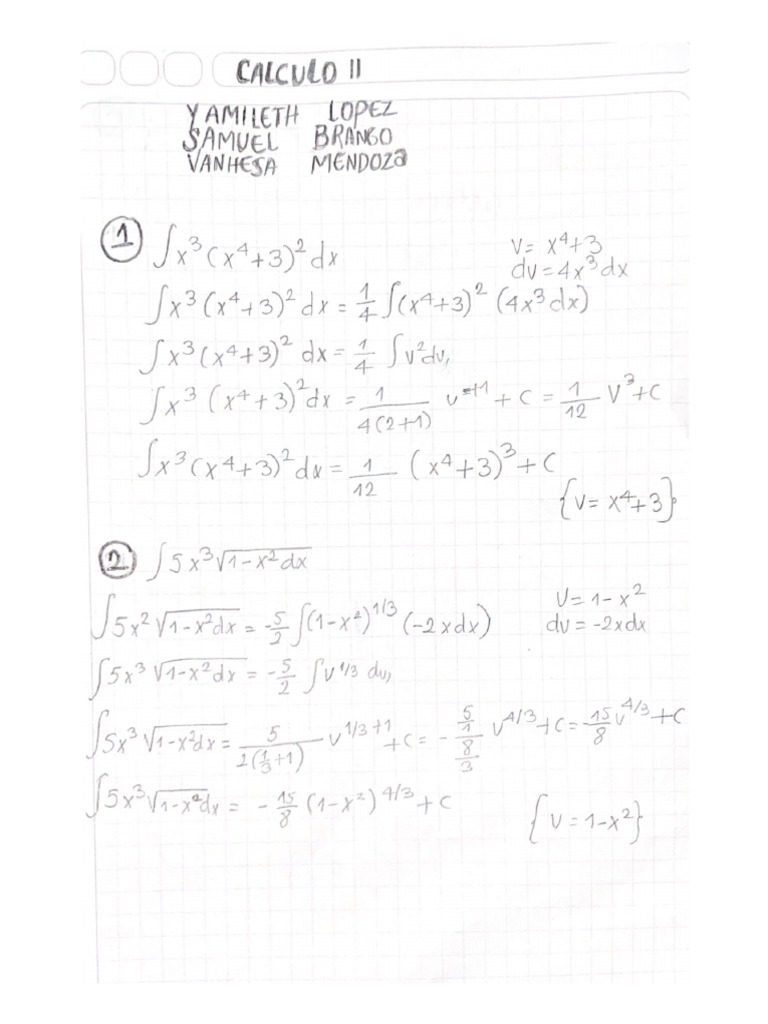 CALCULO II
YAMILETH LOPEZ
SAMUEL BRANGO
VANHESA MENDOZA
① ∫x³(x⁴+3)²dx
v= x⁴+3
dv=4x³dx
∫x³(x⁴+3)²dx = 1/4 ∫(x⁴+3)² (4x³dx)
∫x³(x⁴+3)² dx = 1/4 ∫v²dv,
∫x³ (x⁴+3)²dx = 1/4(2+1) v²⁺¹ + C = 1/12 v³+C
∫x³(x⁴+3)²dx = 1/12 (x⁴+3)³+C
{v= x⁴+3}
② ∫5x³√1-x²dx
U= 1-x²
dv = -2xdx
∫5x²√1-x²dx = -5/2 ∫(1-x²)^1/3 (-2xdx)
∫5x³√1-x²dx = -5/2 ∫v^1/3 dv,
∫5x³√1-x²dx = 5/2(1/3+1) v^1/3+1 +C = - 5/1/8/3 v^4/3+C = -15/8 v^4/3+C
∫5x³√1-x²dx = -15/8 (1-x²)^4/3+C
{v=1-x²}